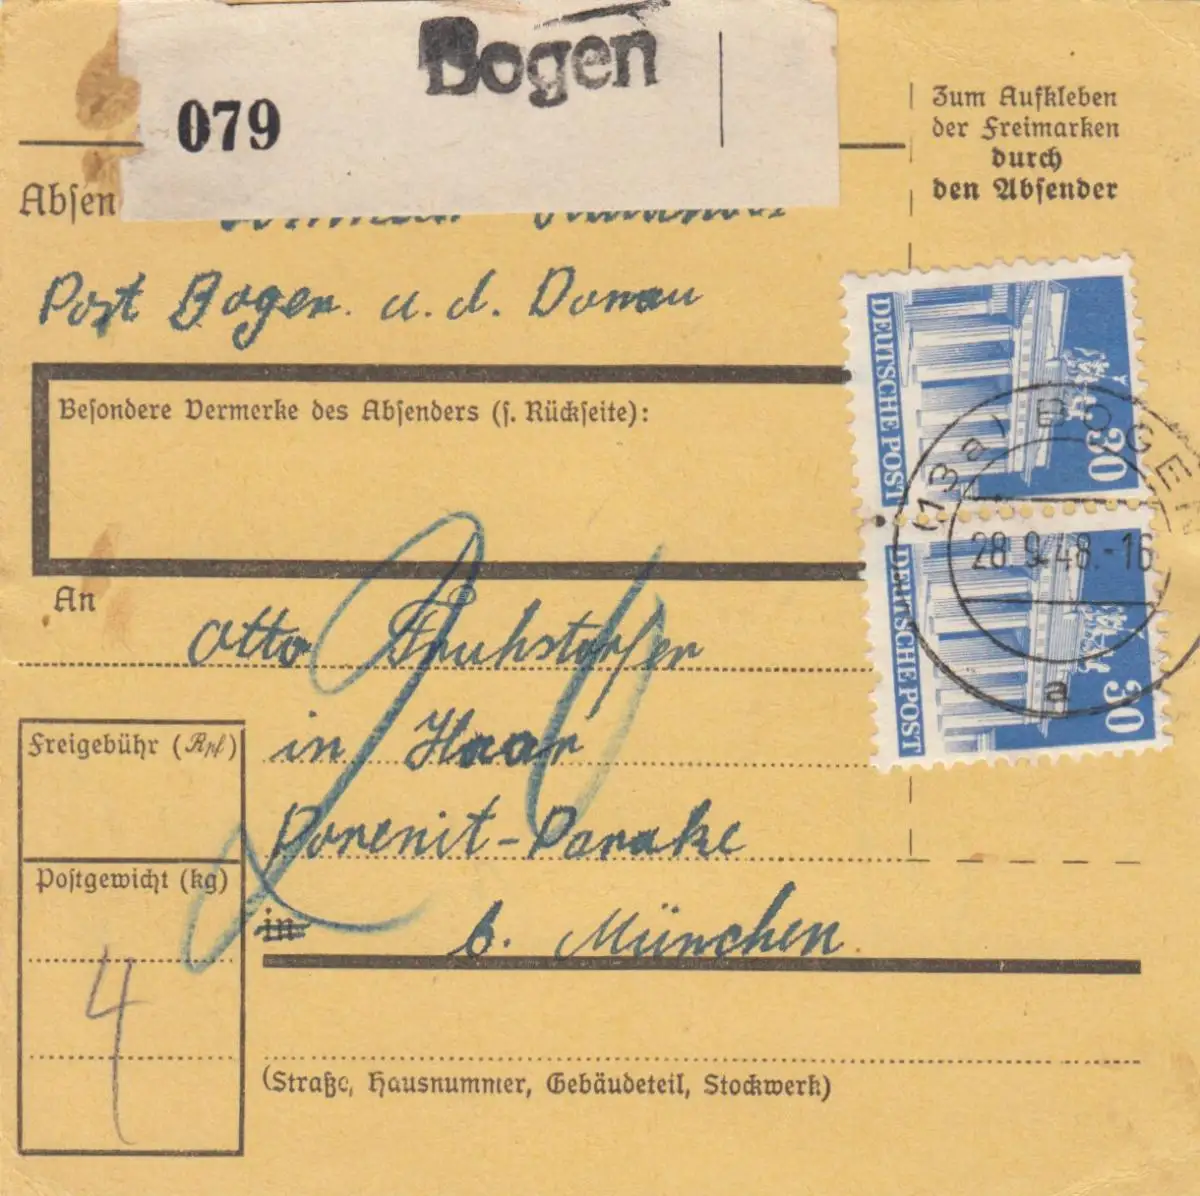 Bogen
079
Zum Aufkleben
der Freimarken
durch
den Absender
Absen
Post Bogen a. d. Donau
Besondere Vermerke des Absenders (s. Rückseite):
DEUTSCHE POST
30
DEUTSCHE POST
30
(13a) BOGEN
28.9.48.-16
a
An
Otto Fruhstorfer
in Haar
Freigebühr (Rpf)
Porenit-Barake
Postgewicht (kg)
in
b. München
4
(Straße, Hausnummer, Gebäudeteil, Stockwerk)